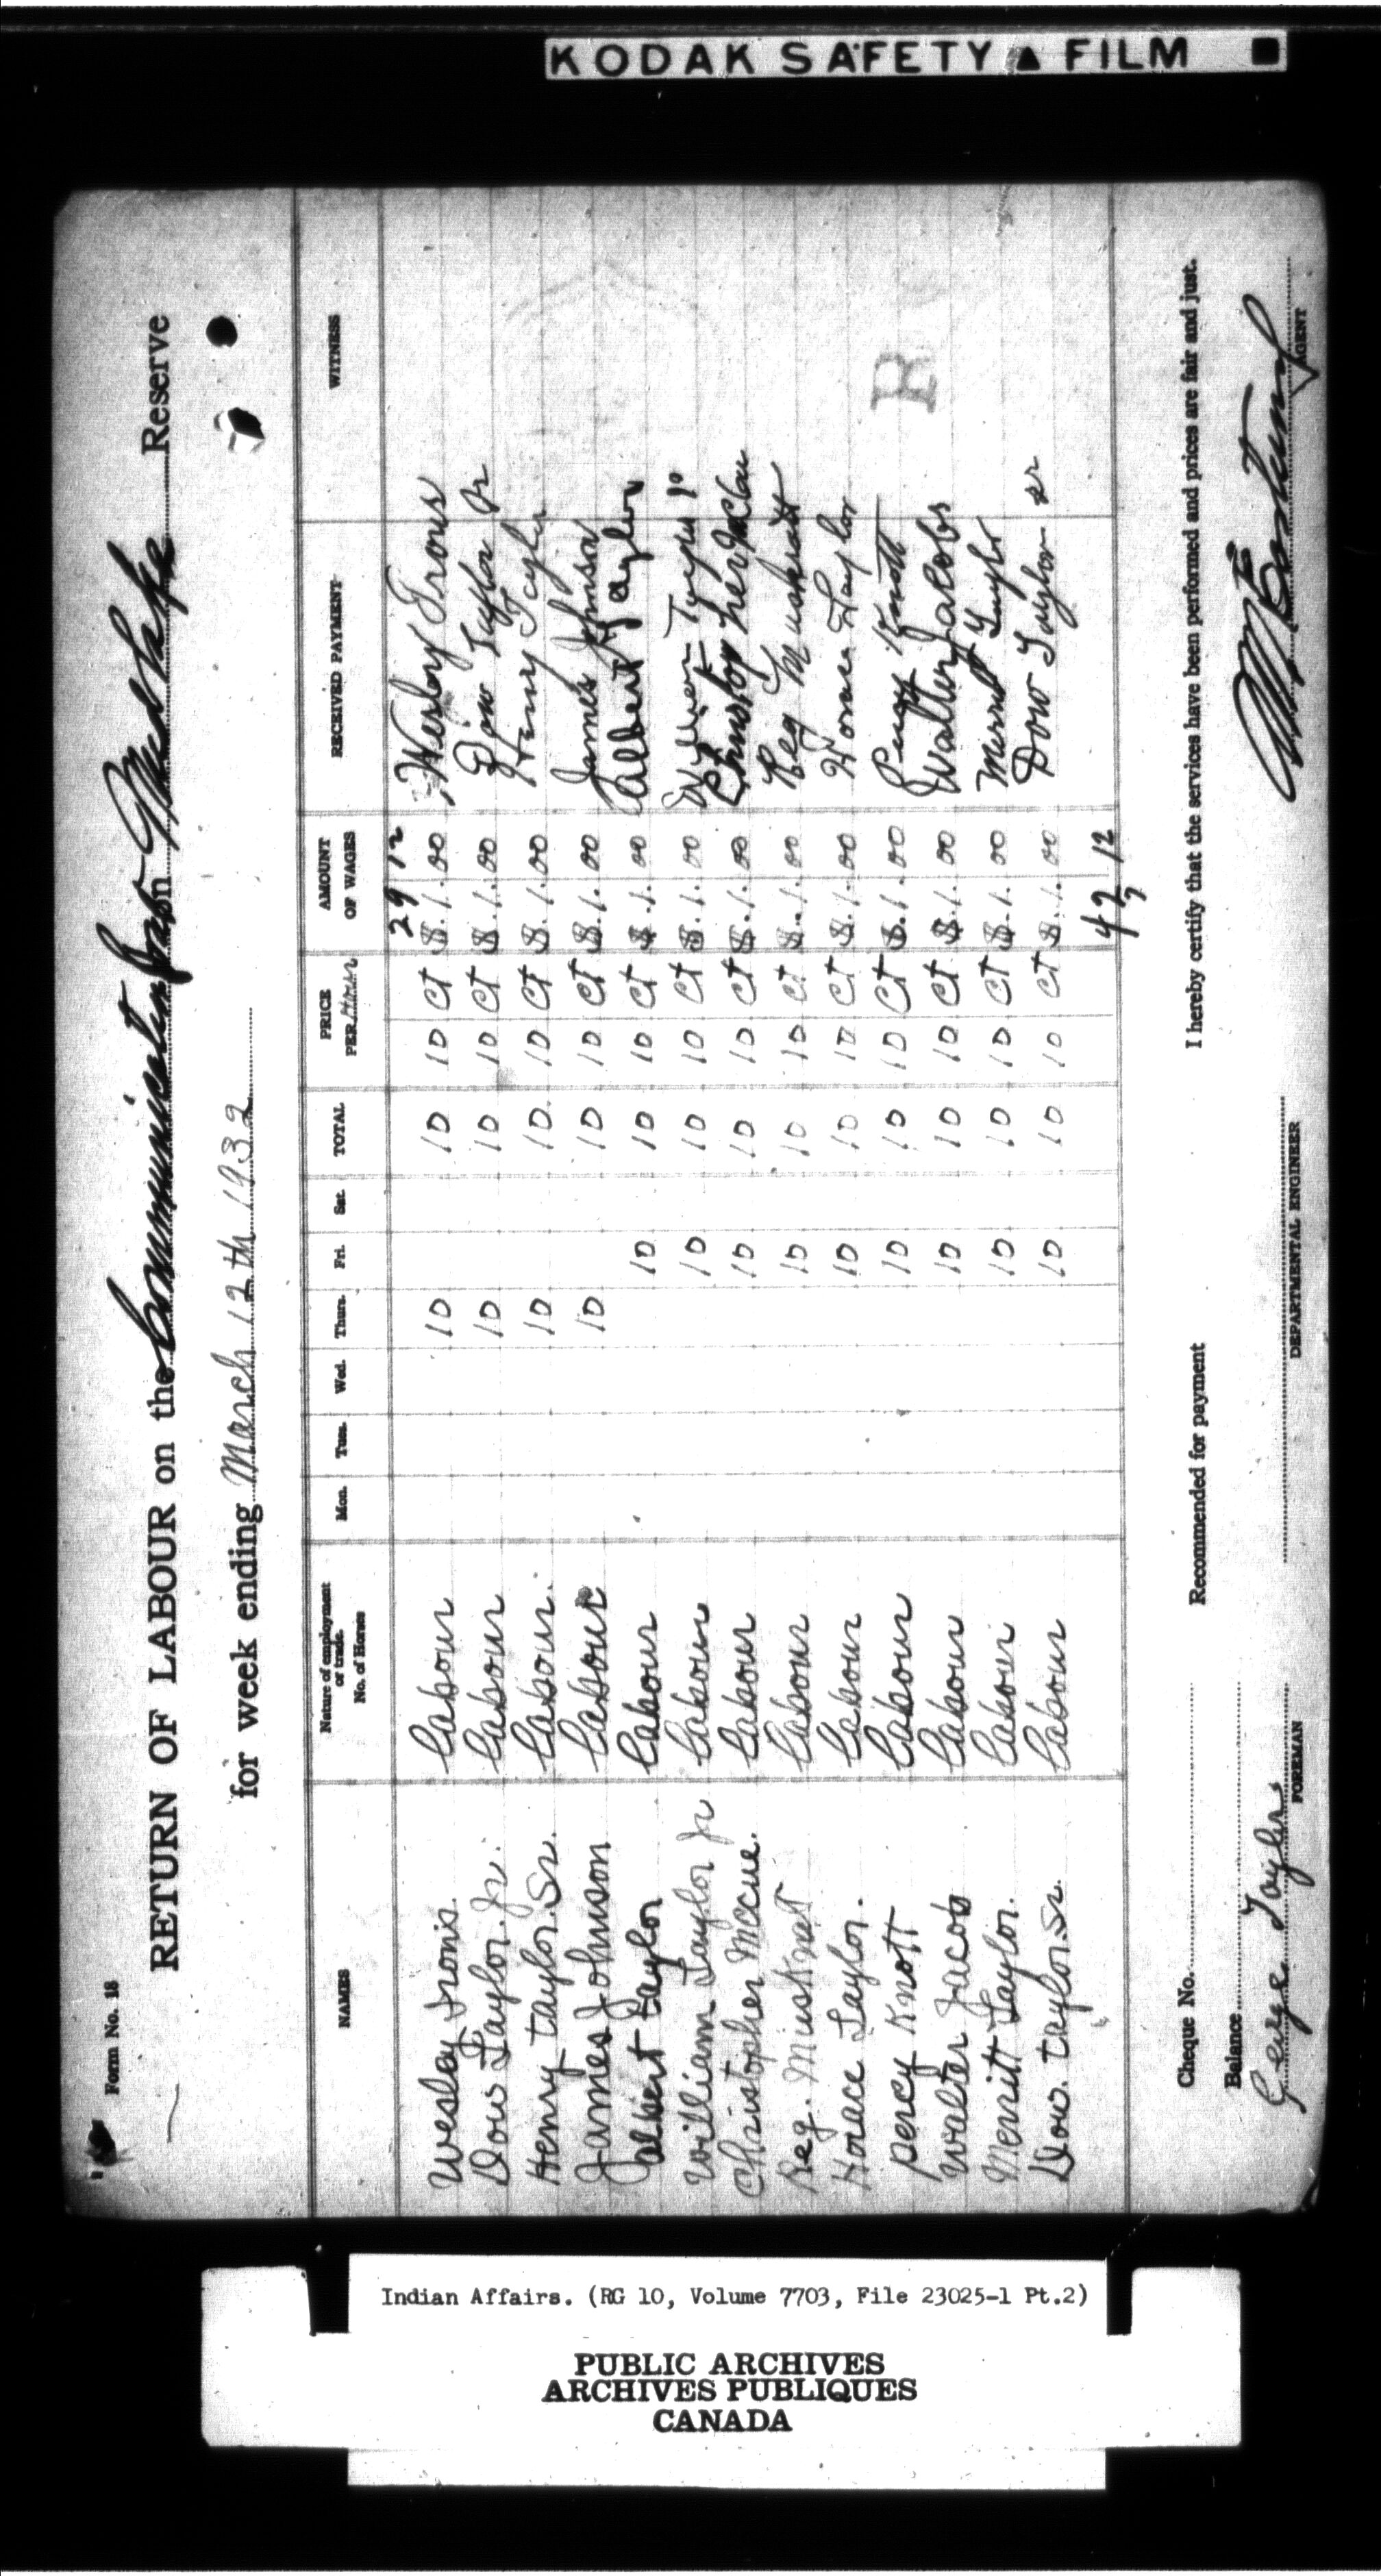 KODAK SAFETY FILM
Form No. 18
RETURN OF LABOUR on the Communication from Mud Lake Reserve
for week ending March 12th 1932
NAMES Nature of employment or trade. No. of Horses Mon. Tue. Wed. Thurs. Fri. Sat. TOTAL PRICE PER Hour AMOUNT OF WAGES RECEIVED PAYMENT WITNESS
29 12
Wesley Irons Labour 10 10 10 ct $.1.00 Wesley Irons
Dow Taylor Jr. Labour 10 10 10 ct $.1.00 Dow Taylor Jr
Henry Taylor Sr. Labour 10 10 10 ct $.1.00 Henry Taylor
James Johnson Labour 10 10 10 ct $.1.00 James Johnson
Albert Taylor Labour 10 10 10 ct $.1.00 Albert Taylor
William Taylor Jr Labour 10 10 10 ct $.1.00
Christopher McCue. Labour 10 10 10 ct $.1.00
Reg. Muskrat Labour 10 10 10 ct $.1.00 Reg Muskratt
Horace Taylor. Labour 10 10 10 ct $.1.00 Taylor
Percy Knott Labour 10 10 10 ct $.1.00 Percy Knott
Walter Jacob Labour 10 10 10 ct $.1.00 Walter Jacobs
Merritt Taylor. Labour 10 10 10 ct $.1.00 Taylor
Dow. Taylor Sr. Labour 10 10 10 ct $.1.00 Dow Taylor sr
42 12
Cheque No. Recommended for payment I hereby certify that the services have been performed and prices are fair and just.
Balance
George Taylor
FOREMAN DEPARTMENTAL ENGINEER AGENT
R
Indian Affairs. (RG 10, Volume 7703, File 23025-1 Pt.2)
PUBLIC ARCHIVES
ARCHIVES PUBLIQUES
CANADA